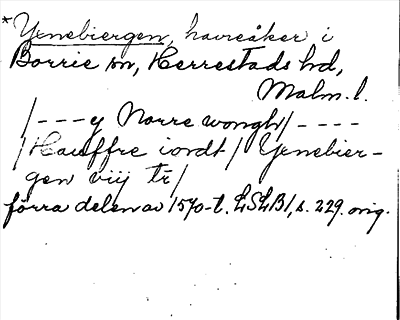 *Yenebiergen, havreåker i
Borrie sn, Herrestads hd,
Malm. l.
/---y Norre wongh/----
/Hauffre iordt/ Yenebier-
gen viij tr/
förra delen av 1570-t. LSLB1, s. 229. orig.